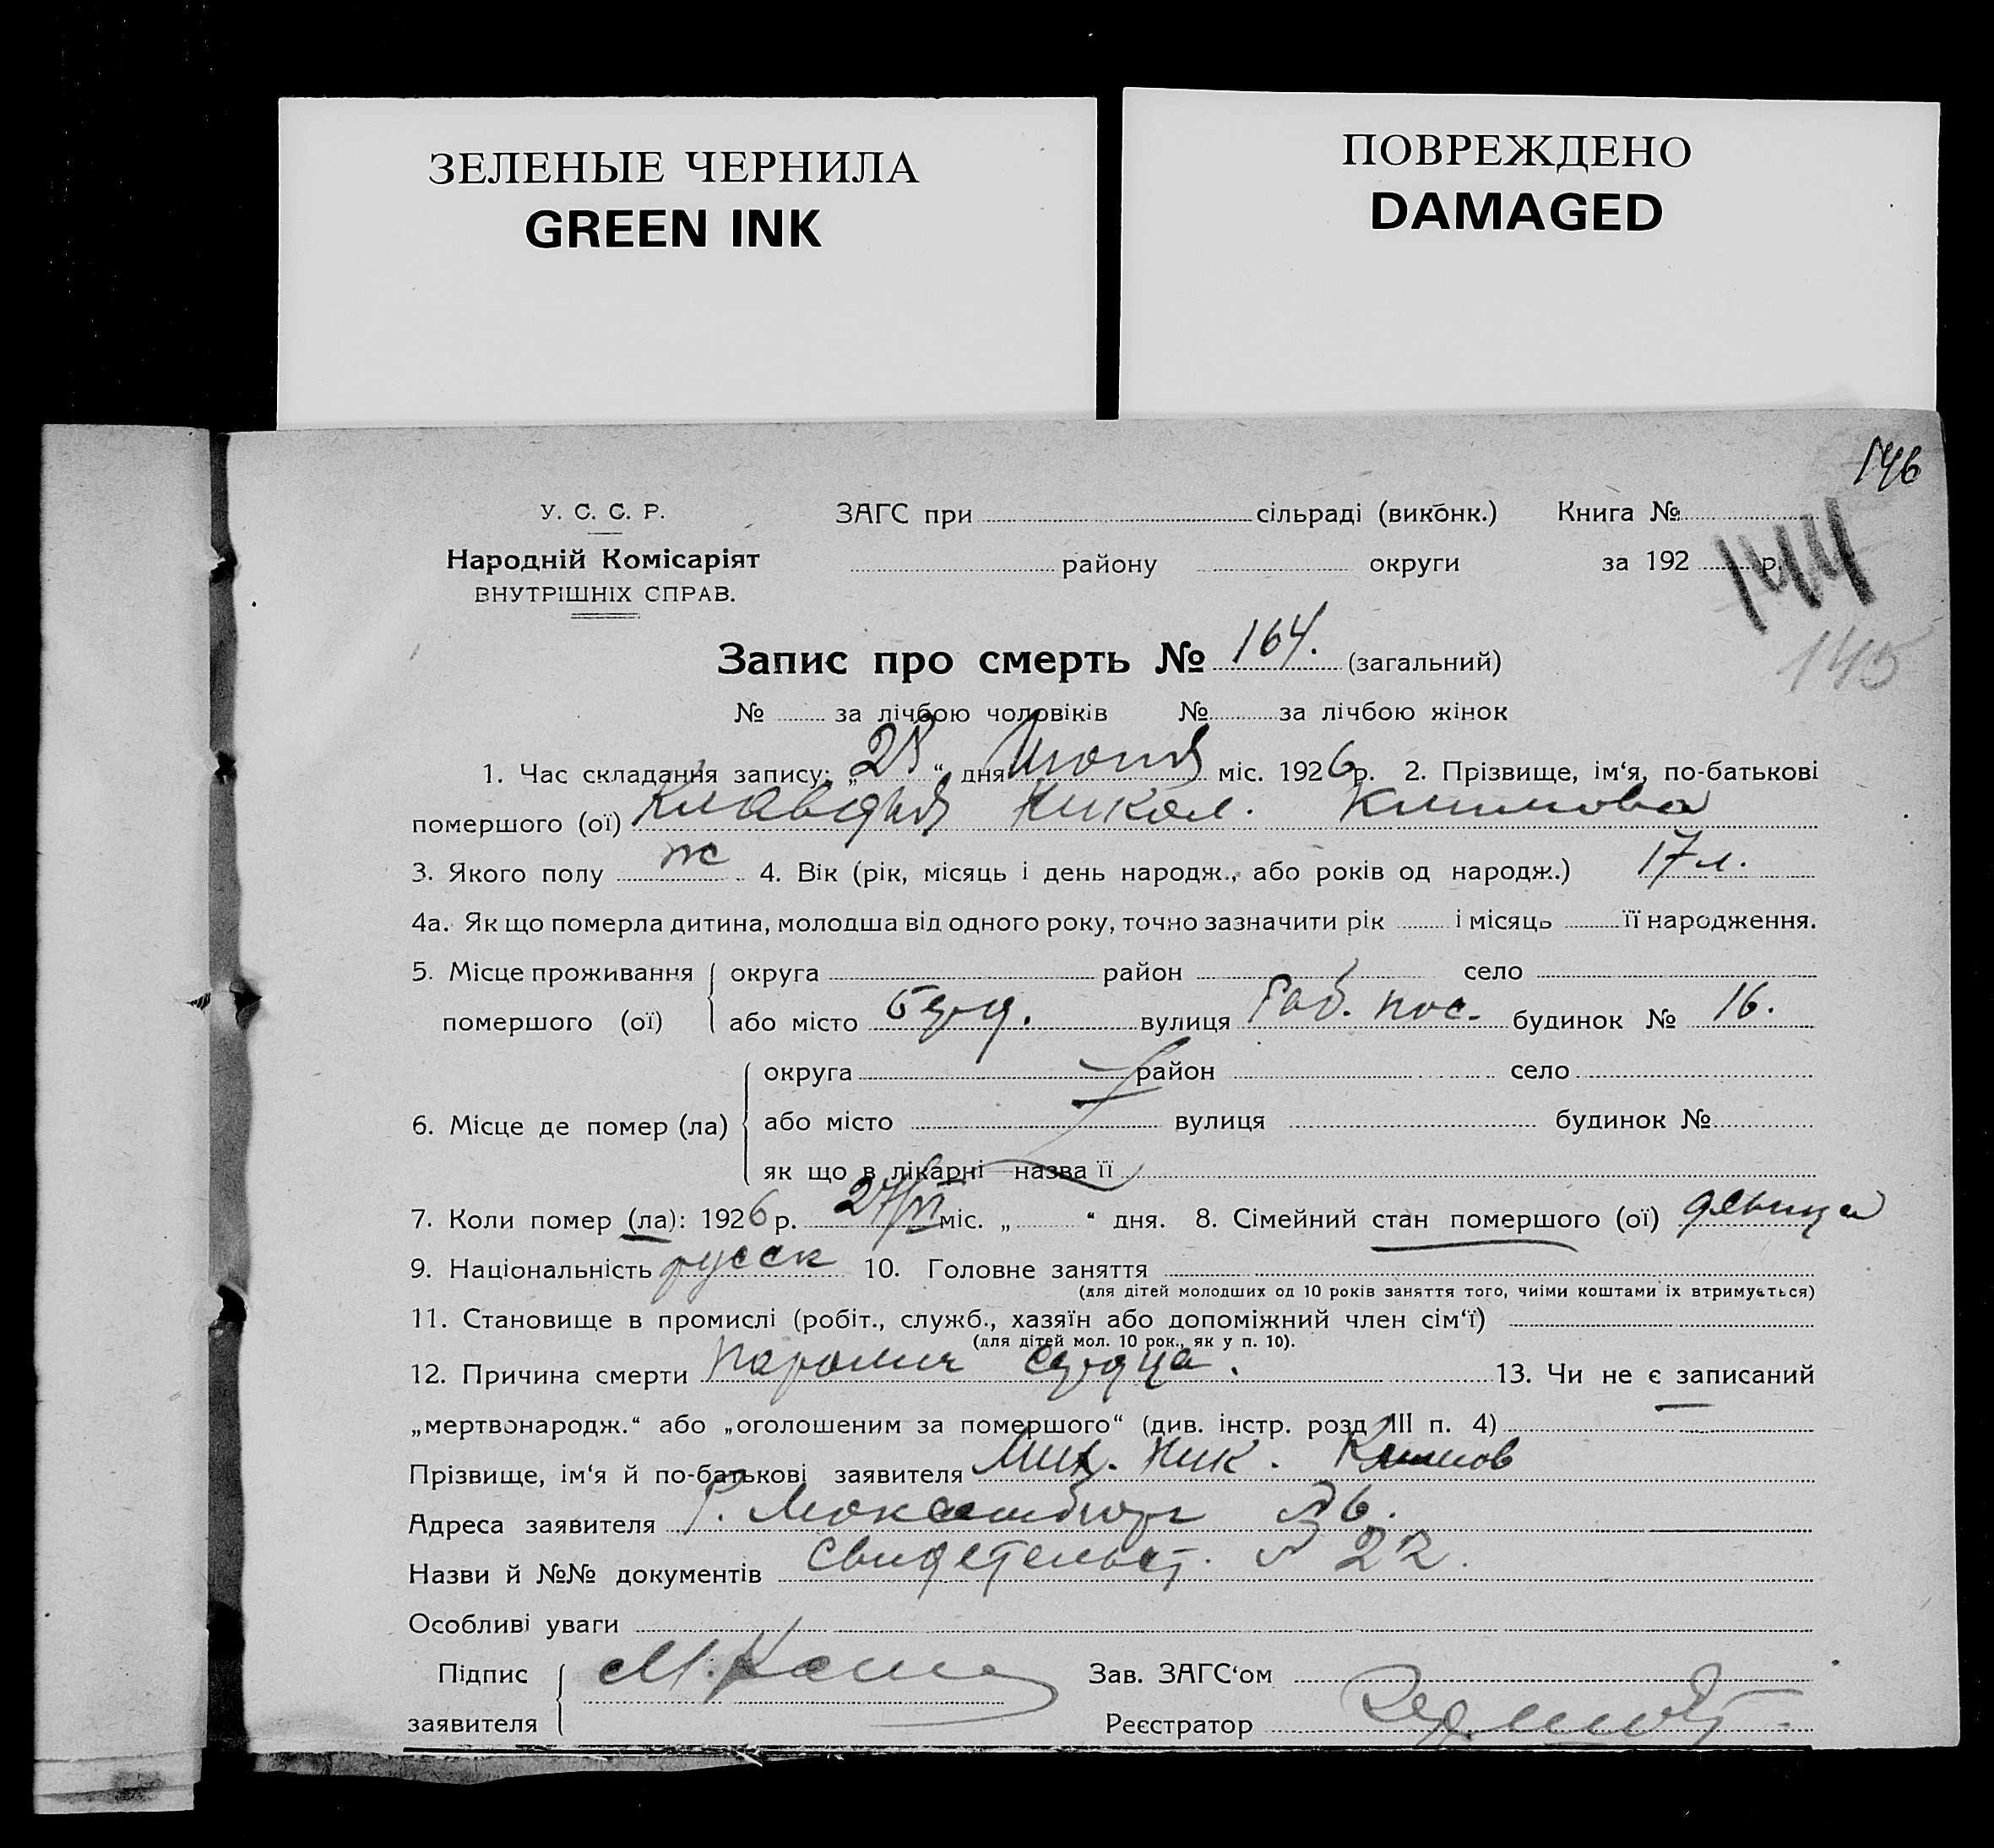 ЗЕЛЕНЫЕ ЧЕРНИЛА
GREEN INK
ПОВРЕЖДЕНО
DAMAGED
146
У. С. С. Р.
ЗАГС при сільраді (виконк.) Книга №
Народній Комісаріят
району округи за 192 р.
ВНУТРІШНІХ СПРАВ.
144
145
Запис про смерть № 164. (загальний)
№ за лічбою чоловіків № за лічбою жінок
1. Час складання запису: „28“ дня Июня міс. 1926 р. 2. Прізвище, ім‘я, по-батькові
помершого (ої) Клавдия Никол. Климова
3. Якого полу ж 4. Вік (рік, місяць і день народж., або років од народж.) 17 л.
4а. Як що померла дитина, молодша від одного року, точно зазначити рік і місяць її народження.
5. Місце проживання округа район село
помершого (ої) або місто Бερд. вулиця Раб. пос. будинок № 16.
6. Місце де помер (ла) округа район село
або місто вулиця будинок №
як що в лікарні назва її
7. Коли помер (ла): 1926 р. 27/VI міс. „ “ дня. 8. Сімейний стан помершого (ої) девица
9. Національність русск 10. Головне заняття
(для дітей молодших од 10 років заняття того, чиїми коштами їх втримується)
11. Становище в промислі (робіт., служб., хазяїн або допоміжний член сім‘ї)
(для дітей мол. 10 рок., як у п. 10).
12. Причина смерти паралич сердца. 13. Чи не є записаний
„мертвонародж.“ або „оголошеним за помершого“ (див. інстр. розд III п. 4)
Прізвище, ім‘я й по-батькові заявителя Мих. Ник. Климов
Адреса заявителя Р. Люксембург № 6.
Назви й №№ документів свидетельст. № 22.
Особливі уваги
Підпис
заявителя
Зав. ЗАГС‘ом
Реєстратор